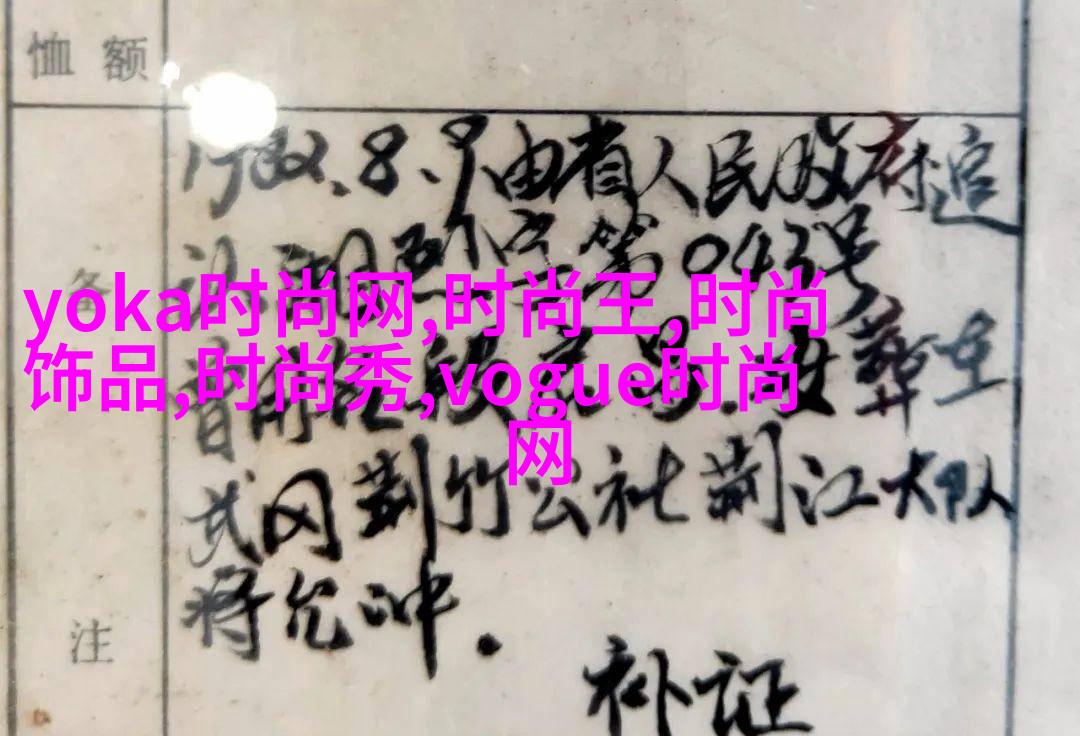 恤额
备
注
1982.8.9由省人民政府追
第043号
葬在
武冈荆竹公社荆江大队
将允冲.
补证
yoka时尚网,时尚王,时尚
饰品,时尚秀,vogue时尚
网